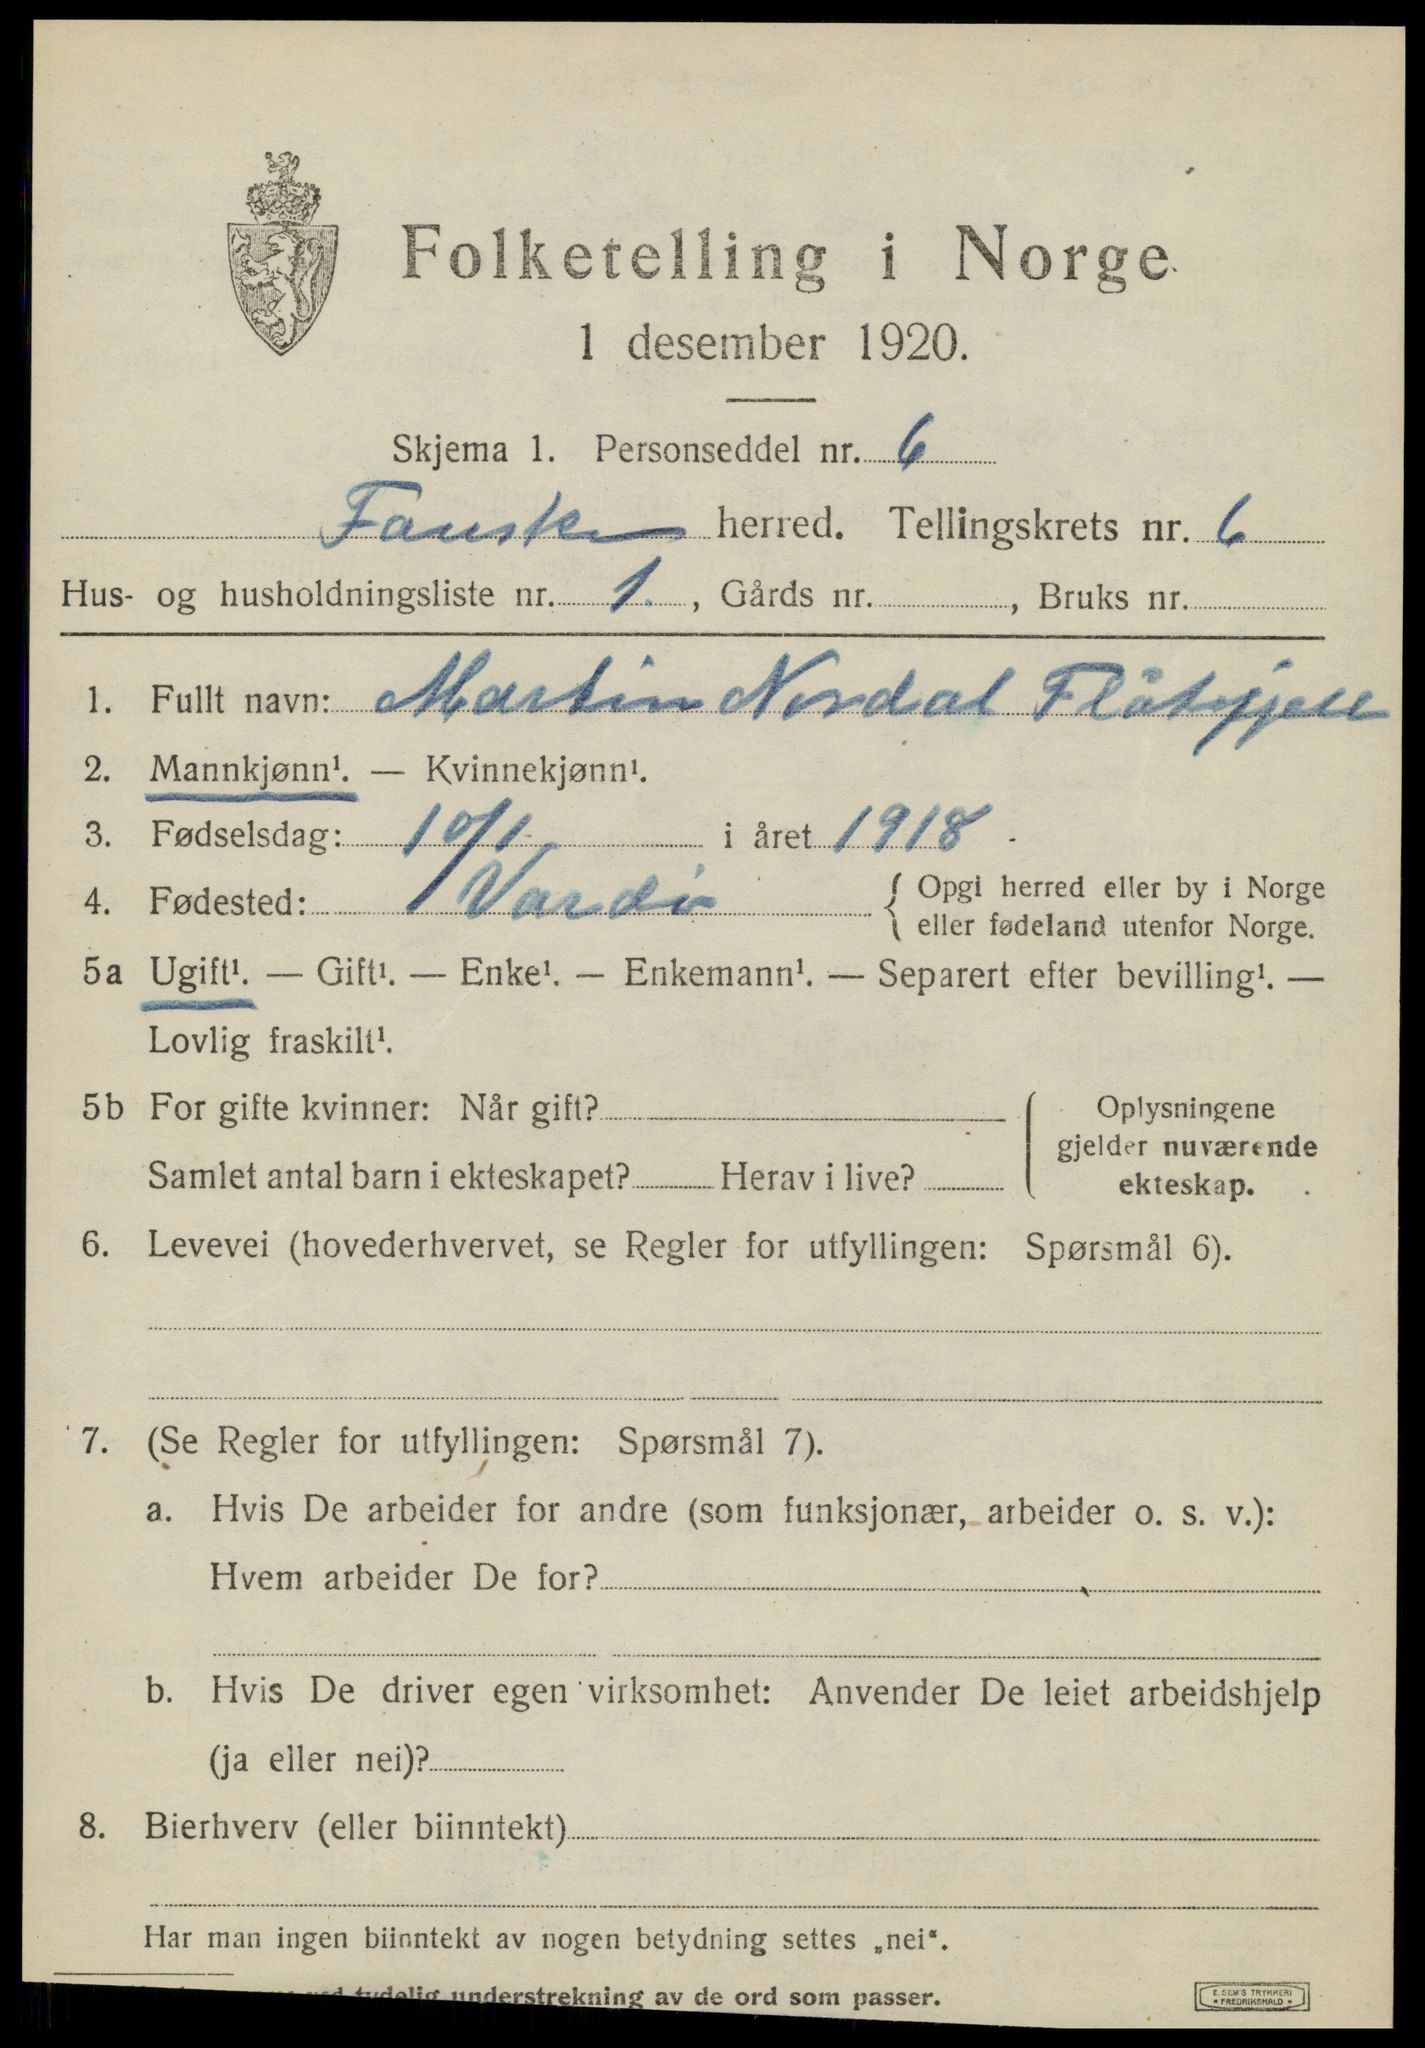 Folketelling i Norge
1 desember 1920.
Skjema 1. Personseddel nr. 6
Fauske herred. Tellingskrets nr. 6
Hus- og husholdningsliste nr. 1. , Gårds nr. , Bruks nr.
1. Fullt navn: Martin Nordal Flåtgjell
2. Mannkjønn¹. — Kvinnekjønn¹.
3. Fødselsdag: 10/1 i året 1918
4. Fødested: Vardø { Opgi herred eller by i Norge
eller fødeland utenfor Norge.
5a Ugift¹. — Gift¹. — Enke¹. — Enkemann¹. — Separert efter bevilling¹. —
Lovlig fraskilt¹.
5b For gifte kvinner: Når gift?
Samlet antal barn i ekteskapet? Herav i live?
Oplysningene
gjelder nuværende
ekteskap.
6. Levevei (hovederhvervet, se Regler for utfyllingen: Spørsmål 6).
7. (Se Regler for utfyllingen: Spørsmål 7).
a. Hvis De arbeider for andre (som funksjonær, arbeider o. s. v.):
Hvem arbeider De for?
b. Hvis De driver egen virksomhet: Anvender De leiet arbeidshjelp
(ja eller nei)?
8. Bierhverv (eller biinntekt)
Har man ingen biinntekt av nogen betydning settes „nei“.
ved tydelig understrekning av de ord som passer.
E. SEM'S TRYKKERI
• FREDRIKSHALD •